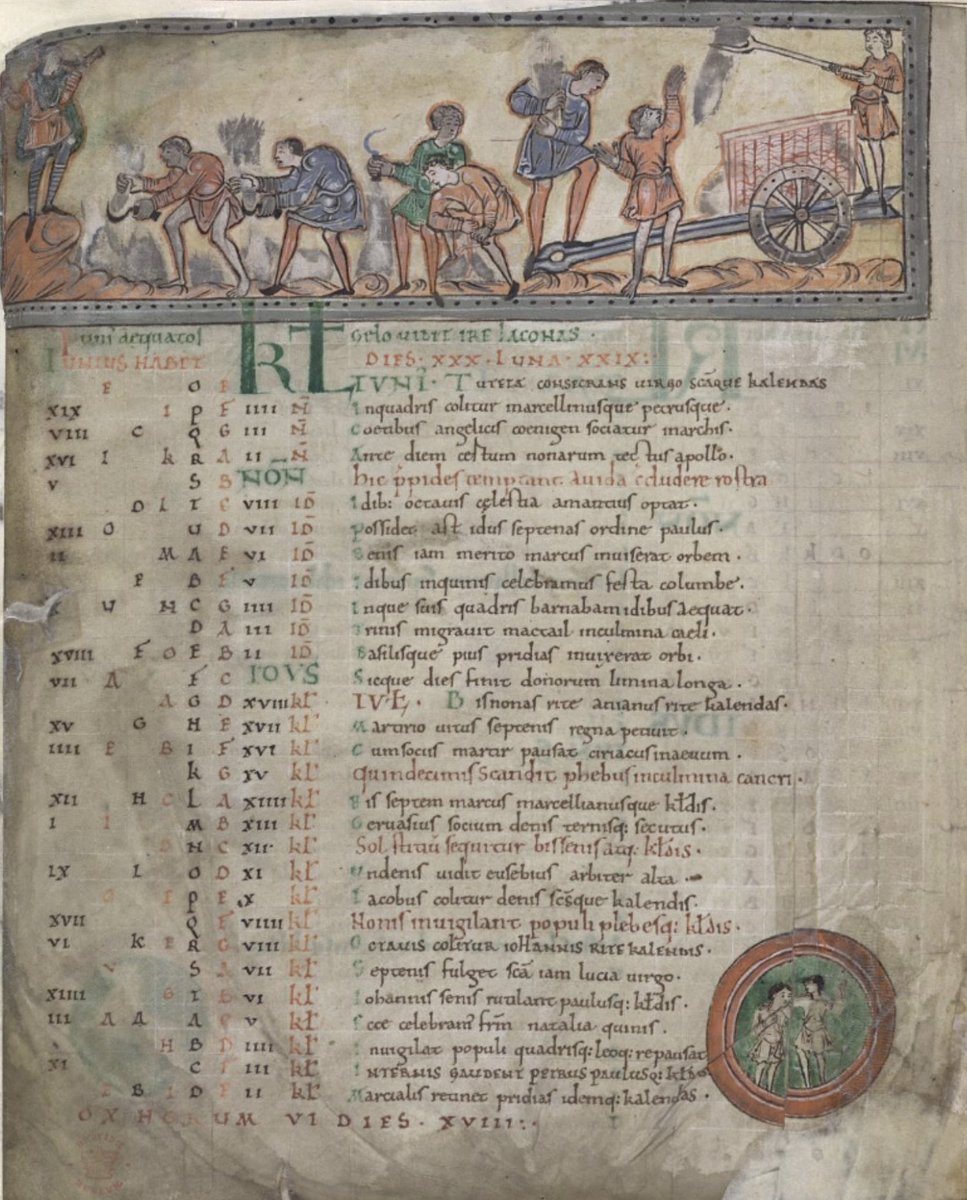 Iunius aequatos KL caelo uidit ire laconas.
IUNIUS HABET DIES. XXX. LUNA. XXIX:
E O E IUNI. Tutela consecrans uirgo scāque kalendas
XIX I P F IIII N̄ Inquadris colitur marcellinusque petrusque.
VIII C Q G III N̄ Coetibus angelicis coenigen sociatur marchis.
XVI I K R A II N̄ Ante diem cestum nonarum tectus apollo.
V S B NON̄
D L T C VIII ID̄ Idib: octauis celestia amantius optat.
XIII O U D VII ID̄ Possidet ast idus septenas ordine paulus.
II M A E VI ID̄ Senis iam merito marcus inuiserat orbem.
F B F V ID̄ Idibus inquinis celebramus festa columbe.
U N C G IIII ID̄ Inque suis quadris barnaban idibus aequat.
D A III ID̄ Trinis migrauit mactail inculmina caeli.
XVIII F O E B II ID̄ Basilisque pius pridias inuixerat orbi.
VII A F C IDUS Sicque dies finit donorum lumina longa.
A G D XVIII kl̄ IUL̄. Bisnonas rite anianus rite kalendas.
XV G H E XVII kl̄ Martirio uitus septenis regna petiuit.
IIII E B I F XVI kl̄ Cumsocus martir pausat ciriacus inaeuum.
K G XV kl̄ Quindecimis scandit phebus inculmina cancri.
XII H C L A XIIII kl̄ Bis septem marcus marcellianusque kl̄dis.
I I M B XIII kl̄ Geruasius socium denis ternisq: secutus.
D N C XII kl̄ Sol statū sequitur bissenis atq: kl̄dis.
IX L O D XI kl̄ Undenis uidit eusebius arbiter alta.
G E P E X kl̄ Iacobus colitur denis scs̄que kalendis.
XVII Q F VIIII kl̄ Nonis inuigilant populi plebesq: kl̄dis.
VI K E R G VIII kl̄ Octauis colitur iohannis rite kalendis.
S A VII kl̄ Septenis fulget scā iam lucia uirgo.
XIIII G T B VI kl̄ Iohannis senis rutilant paulusq: kl̄dis.
III A A A C V kl̄ Ecce celebrant frm̄ natalia quinis.
H B D IIII kl̄ Inuigilat populi quadrisq: leoq: repausat
XI C E III kl̄ Internis gaudent petrus paulusq: kl̄dis
B I D F II kl̄ Marcialis retinet pridias idemq: kalendas.
NOX HORARUM VI DIES. XVIII:.